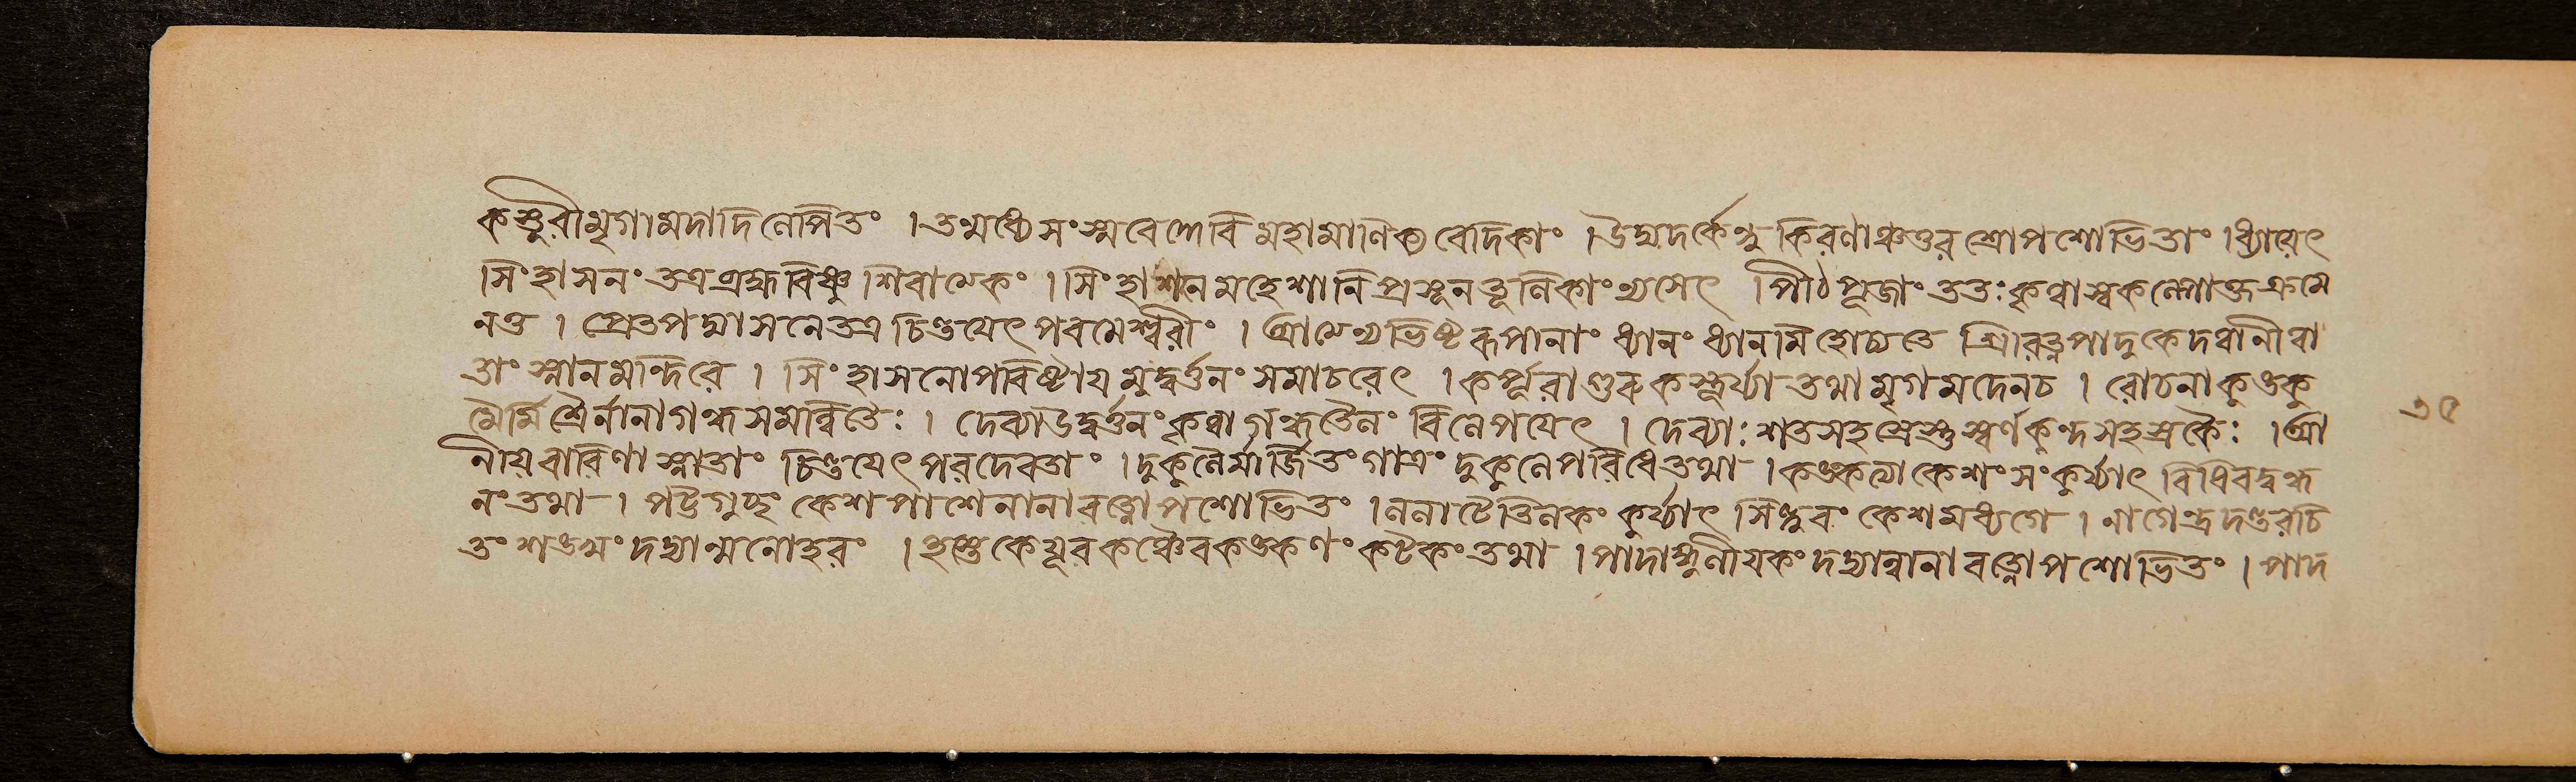 কস্তুরীমৃগামদাদিলেপিতং । তন্মধ্যে সংস্মরেদ্দেবি মহামাণিক্যবেদিকাং । উদ্যদর্কেন্দুকিরণাঞ্চতুরশ্রোপশোভিতাং । ধ্যায়েৎ
সিংহাসনং তত্র ব্রহ্মবিষ্ণুশিবাত্মকং । সিংহাশনমহেশানি প্রসূনতূলিকাং ন্যসেৎ । পীঠপূজাং ততঃ কৃত্বা স্বকল্পোক্তক্রমে
নতু । প্রেতপদ্মাসনে তত্র চিন্তযেৎ পরমেশ্বরীং । আত্মেন্যভিষ্টরূপানাং ধ্যানং ধ্যানমিহোচ্যতে শ্রিরত্নপাদুকে দত্বা নীত্বা
তাং স্নানমন্দিরে । সিংহাসনোপবিষ্টায মুদ্বর্ত্তনং সমাচরেৎ । কর্পূরাগুরুকস্তূর্য্যা তথা মৃগমদেন চ । রোচনাকুঙকু
মৈর্মিশ্রৈর্নানাগন্ধসমন্বিতৈঃ । দেব্যা উদ্বর্ত্তনং কৃত্বা গন্ধতৈলং বিলেপযেৎ । দেব্যাঃ শতসহস্রেস্তু স্বর্ণকুন্দসহস্রকৈঃ । আ
নীয় বারিণা স্নাতাং চিন্তযেৎ পরদেবতাং । দুকুলৈর্মার্জিতং গাত্রং দুকুলে পরিধে তথা । কঙকত্যা কেশং সংকুর্য্যাৎ বিধিবদ্বন্ধ
নং তথা । পট্টগুচ্ছং কেশপাশে নানারত্নোপশোভিতং । ললাটে তিলকং কুর্য্যাৎ সিন্দুরং কেশমধ্যগে । নাগেন্দ্রদন্তরচি
তং শঙখং দদ্যান্মনোহরং । হস্তে কেযূরকঞ্চৈব কঙকণং কটকং তথা । পাদাঙ্গুলীযকং দদ্যান্নানারত্নোপশোভিতং । পাদ
৩৫